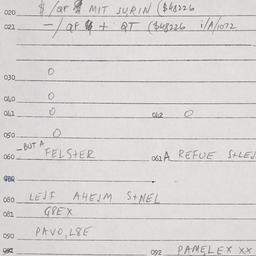 020 $ / ar MIT JURIN ($48226
021 - / ar + QT ($48226 i/A/1072
030 0
040 0
041 0 042 0
050 0
-BUT A
060 FELSTER 061 A REFUE
080 LEIF AHEIM S+NEL
081 G8EX
090 PAVO, L8E
092 PAMELEX XX